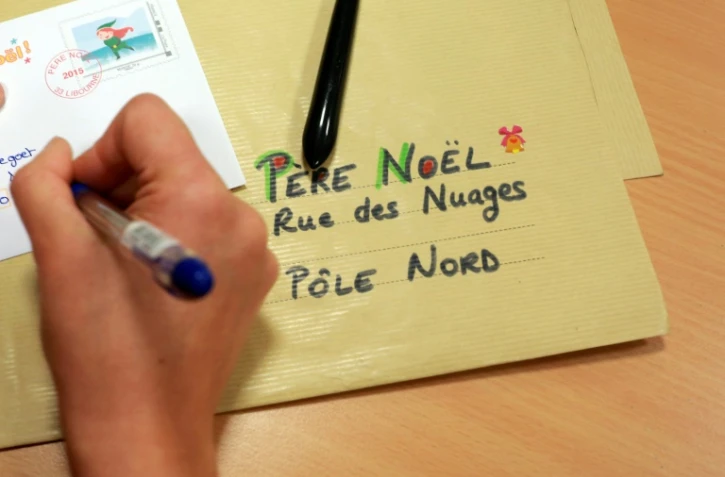 PÈRE NOËL
Rue des Nuages
PÔLE NORD
PÈRE NO
2015
33 LIBOURNE